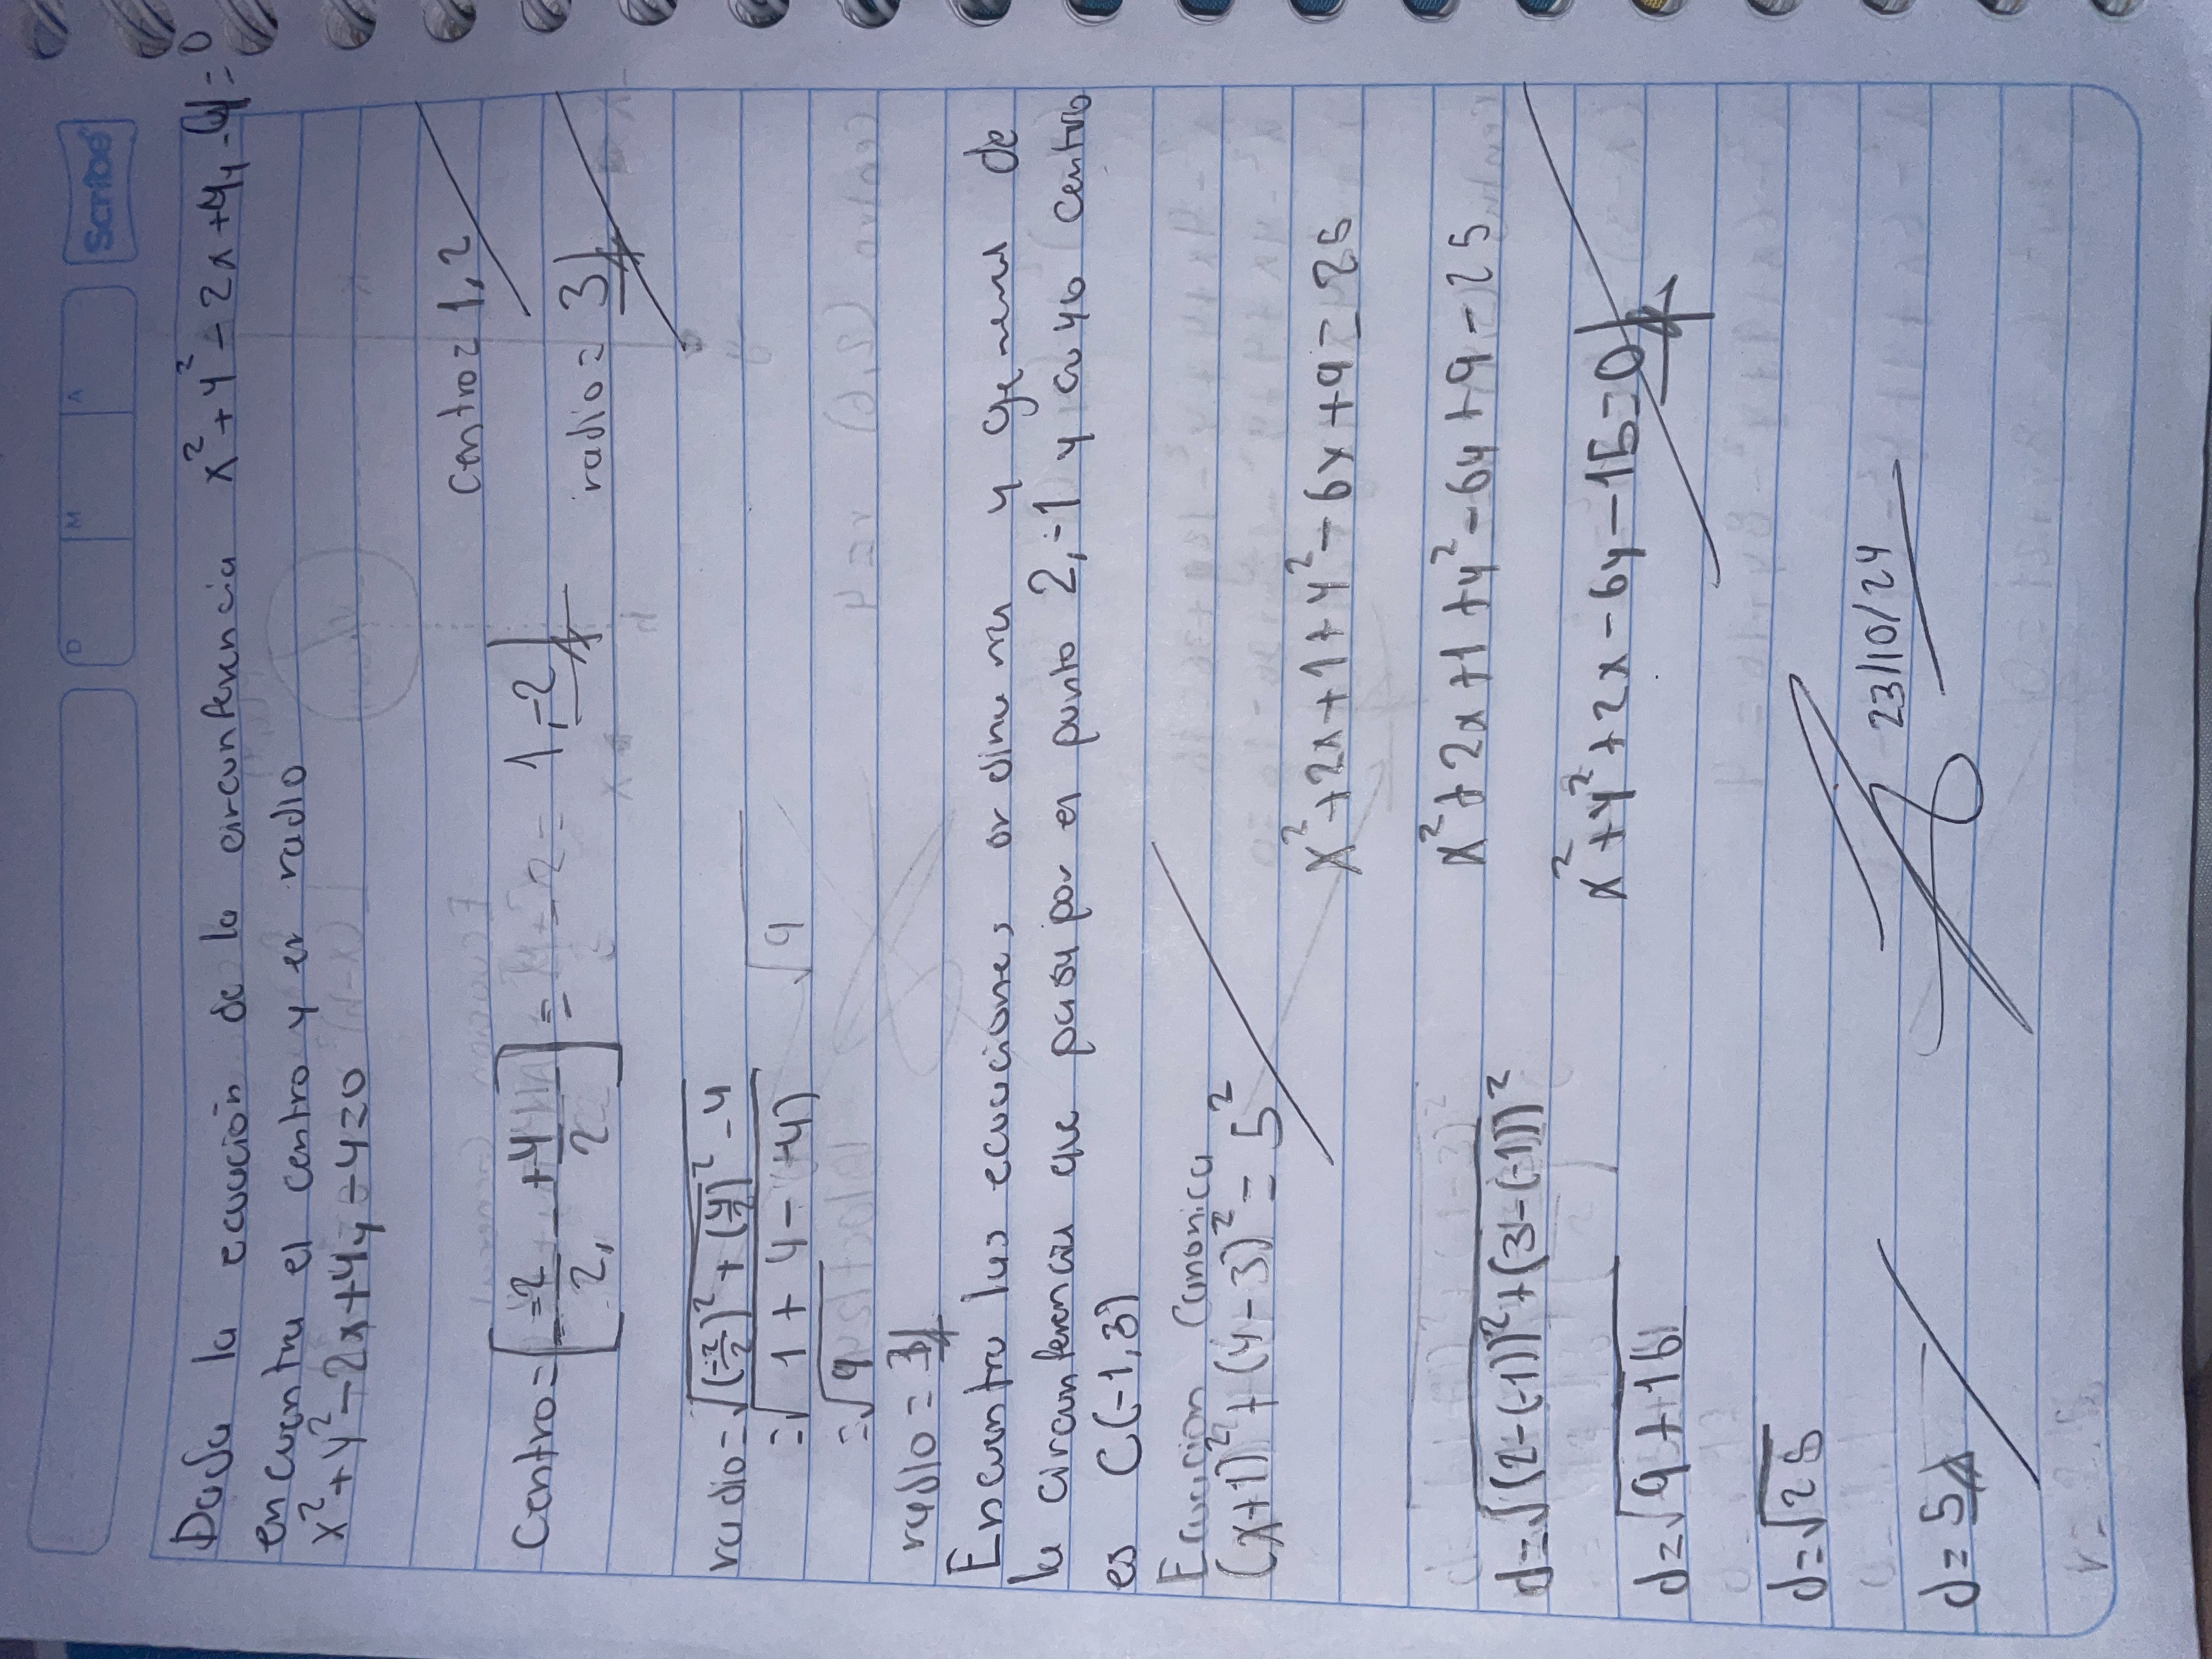 Scribe
D M A
Dada la ecuación de la circunferencia x² + y² - 2x + 4y - 4 = 0
encuentra el centro y el radio
x² + y² - 2x + 4y - 4 = 0
centro = 1, 2
Centro = [- -2/2, - +4/2] = - 2 = 1, -2
radio = 3
radio = √(-2/2)² + (4/2)² - 4
= √1 + 4 - (-4) √9
= √9
radio = 3
Encuentra las ecuaciones ordinaria y general de
la circunferencia que pasa por el punto 2, -1 y cuyo centro
es C(-1, 3)
Ecuacion Canonica
(x+1)² + (y-3)² = 5²
x² + 2x + 1 + y² - 6x + 9 = 25
x² + 2x + 1 + y² - 6y + 9 - 25
d = √(2-(-1))² + (3-(-1))²
x² + y² + 2x - 6y - 15 = 0
d = √9 + 16
d = √25
23/10/24
d = 5